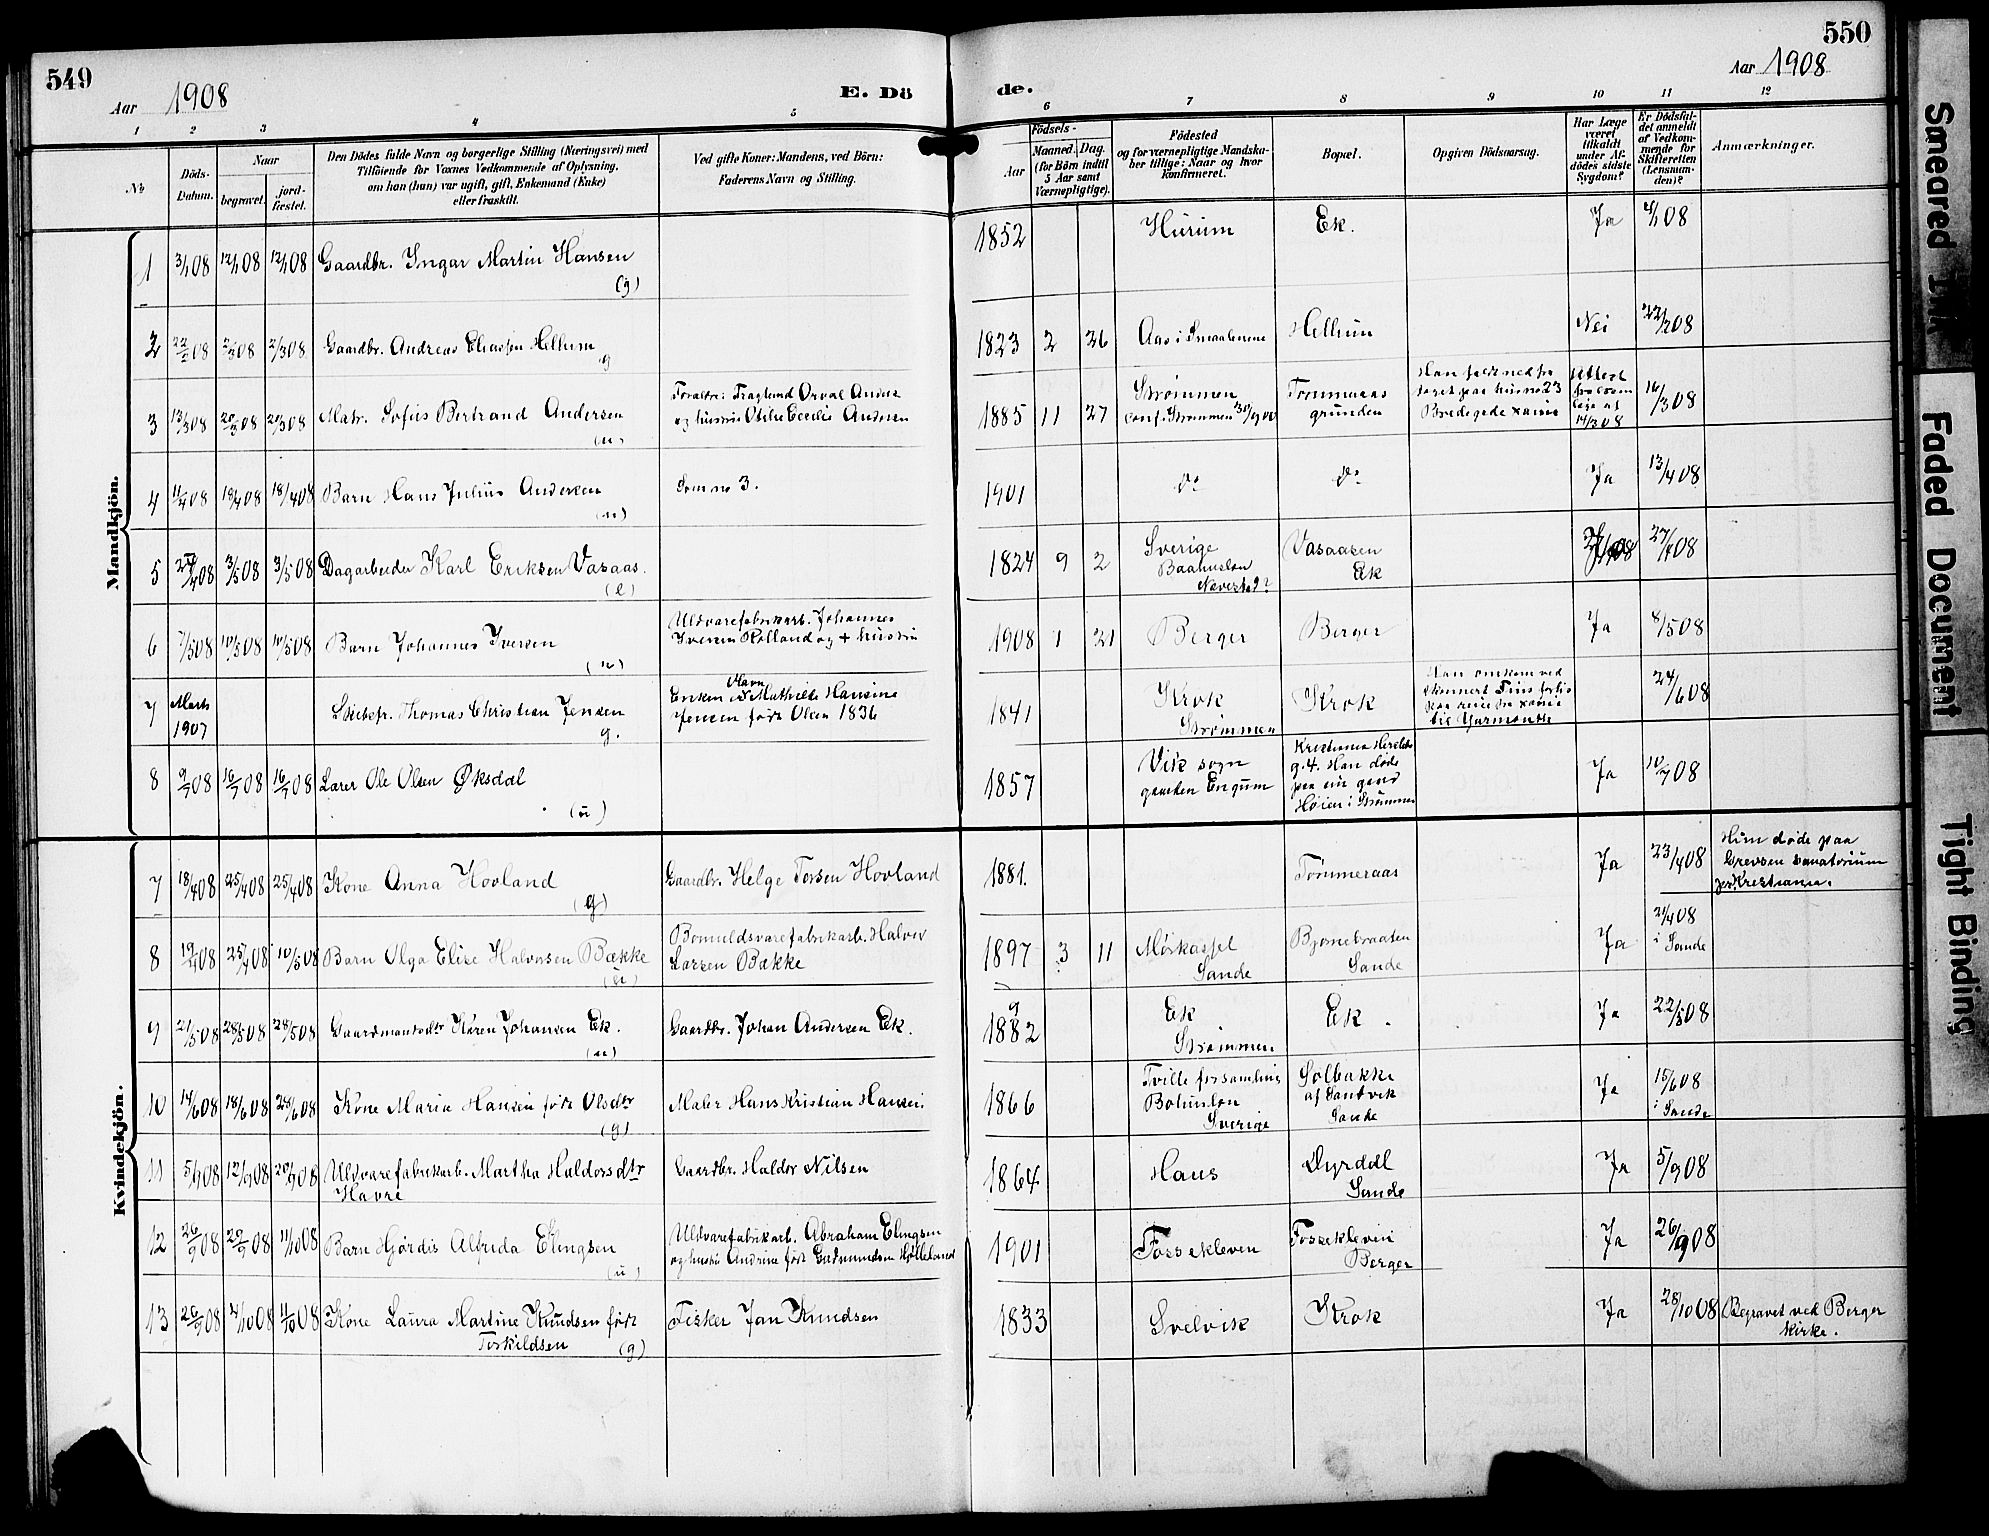 549
550
Aar 1908
E. Dö
de.
Aar 1908
1 2 3 4 5 6 7 8 9 10 11 12
№
Döds-
Datum.
Naar
begravet.
jord-
fæstet.
Den Dödes fulde Navn og borgerlige Stilling (Næringsvei) med
Tilföiende for Voxnes Vedkommende af Oplysning,
om han (hun) var ugift, gift, Enkemand (Enke)
eller fraskilt.
Ved gifte Koner: Mandens, ved Börn:
Faderens Navn og Stilling.
Födsels-
Aar
Maaned. Dag.
(for Börn indtil
5 Aar samt
Værnepligtige).
Födested
og for værnepligtige Mandska-
ber tillige: Naar og hvor
konfirmeret.
Bopæl.
Opgiven Dödsaarsag.
Har Læge
været
tilkaldt
under Af-
dödes sidste
Sygdom?
Er Dödsfal-
det anmeldt
af Vedkom-
mende for
Skifteretten
(Lensman-
den)?
Anmærkninger.
Mandkjön.
1 3/1 08 12/1 08 12/1 08 Gaardbr. Ingar Martin Hansen
(g)
1852 Hurum Ek. Ja 4/1 08
2 22/2 08 2/3 08 2/3 08 Gaardbr. Andreas Eliassen Hellum
g
1823 2 26 Aas i Smaalenene Hellum Nei 22/2 08
3 13/3 08 20/3 08 20/3 08 Matr. Sofus Bertrand Andersen
(u)
Foræltre: Fraglund Orval Anders
og hustru Otilie Cecilie Andersen
1885 11 27 Strømmen
conf. Strømmen 30/9 00
Tømmeraas
grunden
Han faldt ned fra
taget paa hus no 23
Bredegade xania
Attest
fra
læge af
14/3 08
16/3 08
4 11/4 08 18/4 08 18/4 08 Barn Hans Julius Andersen
(u)
Som no 3.
1901 do do Ja 13/4 08
5 27/4 08 3/5 08 3/5 08 Dagarbeider Karl Eriksen Vasaas.
(e)
1824 9 2 Sverige
Baahuslen
Naverstad?
Vasaasen
Ek
27/4 08
6 7/5 08 10/5 08 10/5 08 Barn Johannes Iversen
(u)
Uldvarefabrikarb. Johannes
Iversen Rolland og + hustru
1908 1 21 Berger Berger Ja 8/5 08
7 Marts
1907
Skibsfr. Thomas Christian Jensen
g.
Enken Mathilde Hansine
Jensen født Olsen 1836
1841 Krok
Strømmen
Krok
Han omkom ved
skonnert forlis
paa reise fra xania
til Yarmouth
24/6 08
8 9/7 08 16/7 08 16/7 08 Lærer Ole Olsen Øksdal
(u)
1857 Vik sogn
gaarden Engum
Kristiania
g. 4. Han døde
paa sin gaard
Høien i Strømmen
Ja 10/7 08
Kvindekjön.
7 18/4 08 25/4 08 25/4 08 Kone Anna Hovland
(g)
Gaardbr. Helge Torsen Hovland
1881. Tømmeraas Ja 23/4 08
Hun døde paa
Grevsen sanatorium
pr. Kristiania.
8 19/4 08 25/4 08 10/5 08 Barn Olga Elise Halvorsen Bække
(u)
Bomuldsvarefabrikarb. Halvor
Larsen Bække
1897 3 11 Mørkassel
Sande
Bjørnebraaten
Sande
Ja 21/4 08
i Sande
9 21/5 08 28/5 08 28/5 08 Gaardmandsdtr Karen Johansen Ek.
(u)
Gaardbr. Johan Andersen Ek.
1882 Ek
Strømmen
Ek. Ja 22/5 08
10 14/6 08 18/6 08 28/6 08 Kone Maria Hansen født Olsdtr
(g)
Maler Hans Kristian Hansen.
1866 Tvilte forsamling
Bohuslen
Sverige
Solbakke
af Sandvik
Sande
Ja 15/6 08
i Sande
11 5/9 08 12/9 08 20/9 08 Uldvarefabrikarb. Martha Haldorsdtr
Havre
Gaardbr. Haldor Nilsen
1864 Haus Dyrdal
Sande
Ja 5/9 08
12 26/9 08 29/9 08 11/10 08 Barn Hjørdis Alfrida Elingsen
(u)
Uldvarefabrikarb. Abraham Elingsen
og hustru Andrine født Gudmundsen Helleland
1901 Fossekleven Fossekleven
Berger
Ja 26/9 08
13 26/9 08 4/10 08 11/10 08 Kone Laura Martine Knudsen født
Torkildsen (g)
Fisker Jan Knudsen
1833 Svelvik Krok Ja 28/10 08 Begravet ved Berger
kirke.
Smeared Ink
Faded Document
Tight Binding